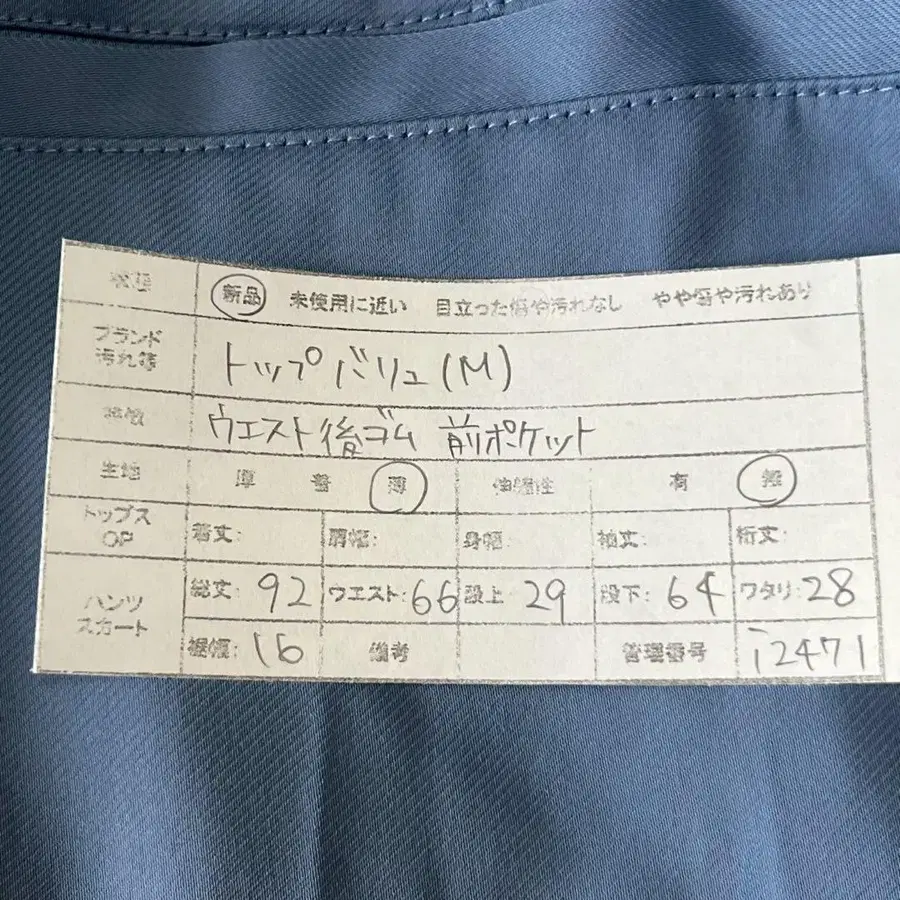 状態 新品 未使用に近い 目立った傷や汚れなし やや傷や汚れあり
ブランド
汚れ等 トップバリュ(M)
ウエスト後ゴム 前ポケット
生地 厚 普 薄 伸縮性 有 無
トップス
OP 着丈: 肩幅: 身幅: 袖丈: 裄丈:
総丈: 92 ウエスト: 66 股上 29 股下: 64 ワタリ: 28
パンツ
スカート
裾幅: 16 備考 管理番号 i2471